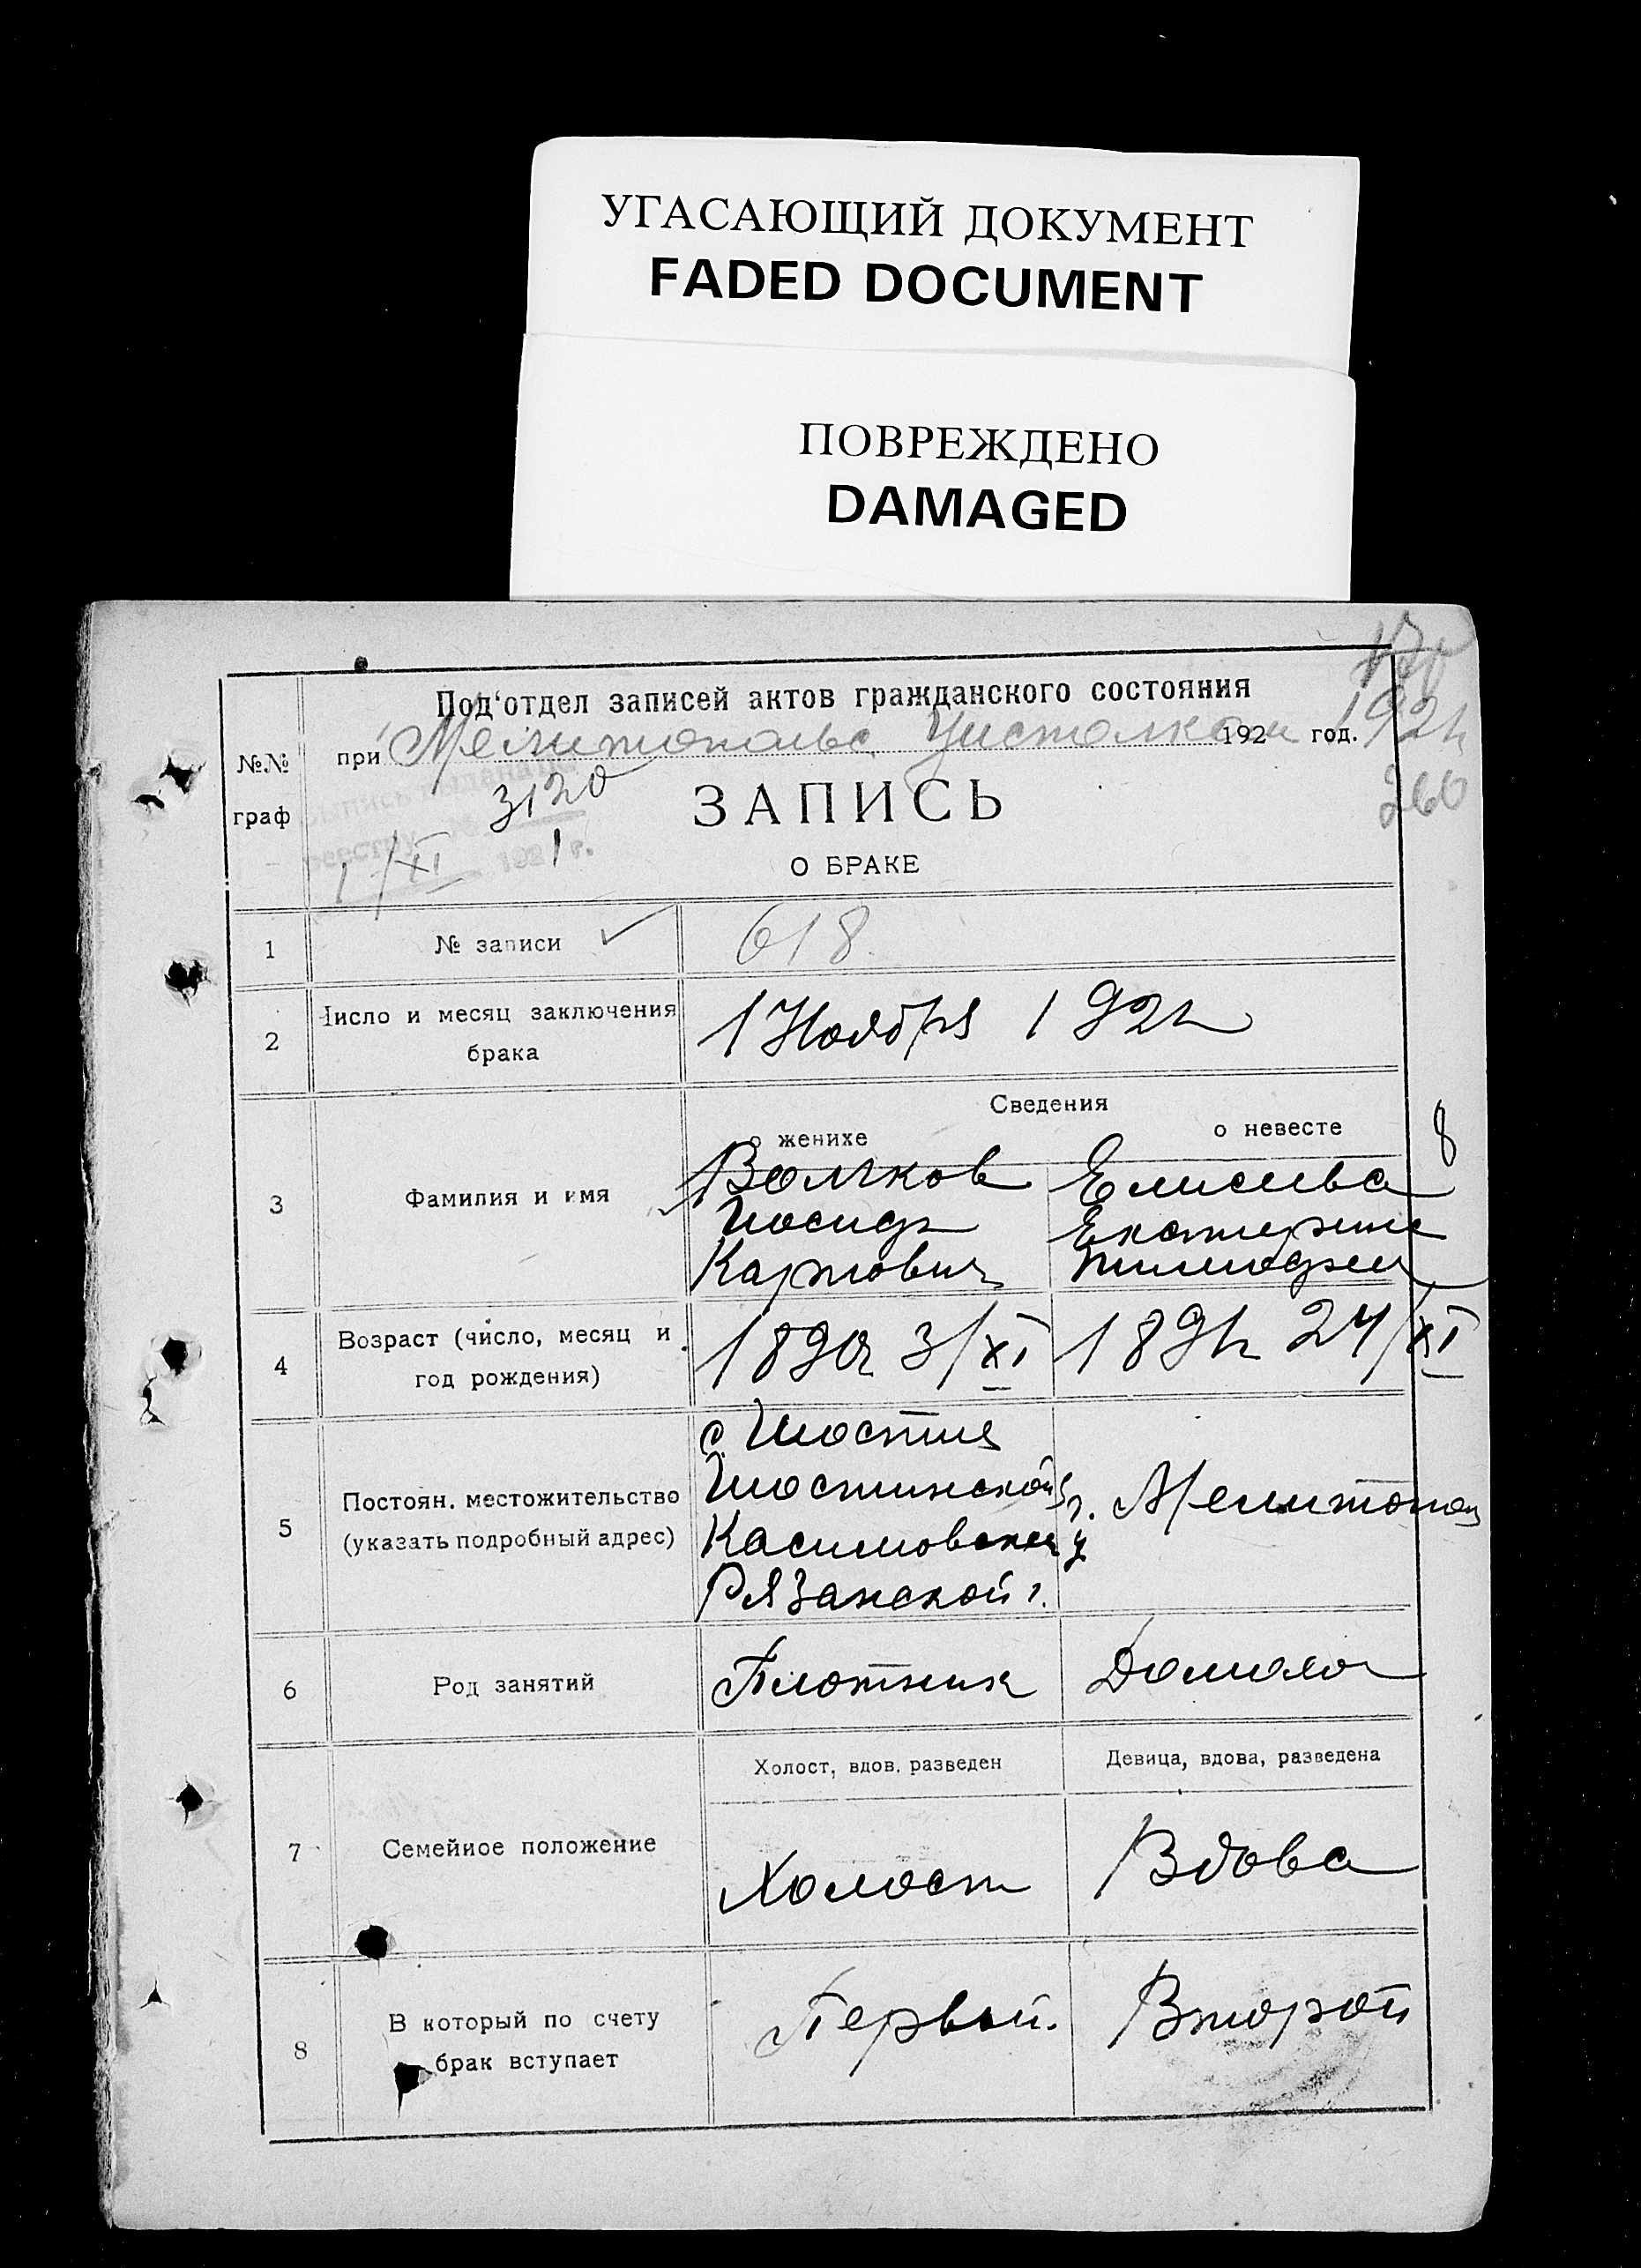 УГАСАЮЩИЙ ДОКУМЕНТ
FADED DOCUMENT
ПОВРЕЖДЕНО
DAMAGED
Под‘отдел записей актов гражданского состояния
№№
граф
при Мелитопольс 192 год. 192
260
3120
1/XI 192 г.
ЗАПИСЬ
О БРАКЕ
1 № записи 618.
2 Число и месяц заключения
брака
1 Ноября 192
Сведения
о женихе о невесте
8
3 Фамилия и имя
Волков Елисеева
Иосиф Екатерина
Карпович Тимофеев
4 Возраст (число, месяц и
год рождения)
189 3/XI 189 24/XI
5 Постоян. местожительство
(указать подробный адрес)
с. Шостия
Шостинской г. Мелитополь
Касимовской у
Рязанской г.
6 Род занятий Плотник Домохоз
Холост, вдов. разведен Девица, вдова, разведена
7 Семейное положение Холост Вдова
8 В который по счету
брак вступает
Первый. Второй